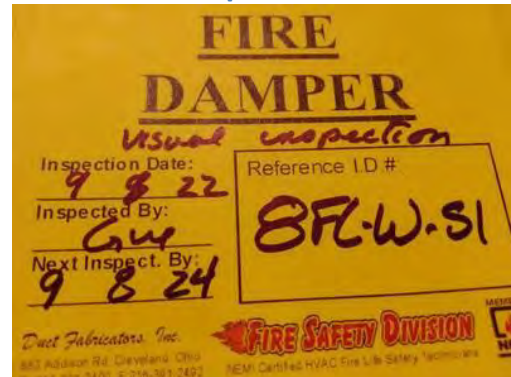 FIRE
DAMPER
visual inspection
Inspection Date:
9 8 22
Inspected By:
Next Inspect. By:
9 8 24
Reference I.D #
8FL-W-S1
Duct Fabricators, Inc.
883 Addison Rd. Cleveland, Ohio
216-391-2492
FIRE SAFETY DIVISION
NEMI Certified HVAC Fire Life Safety Technicians